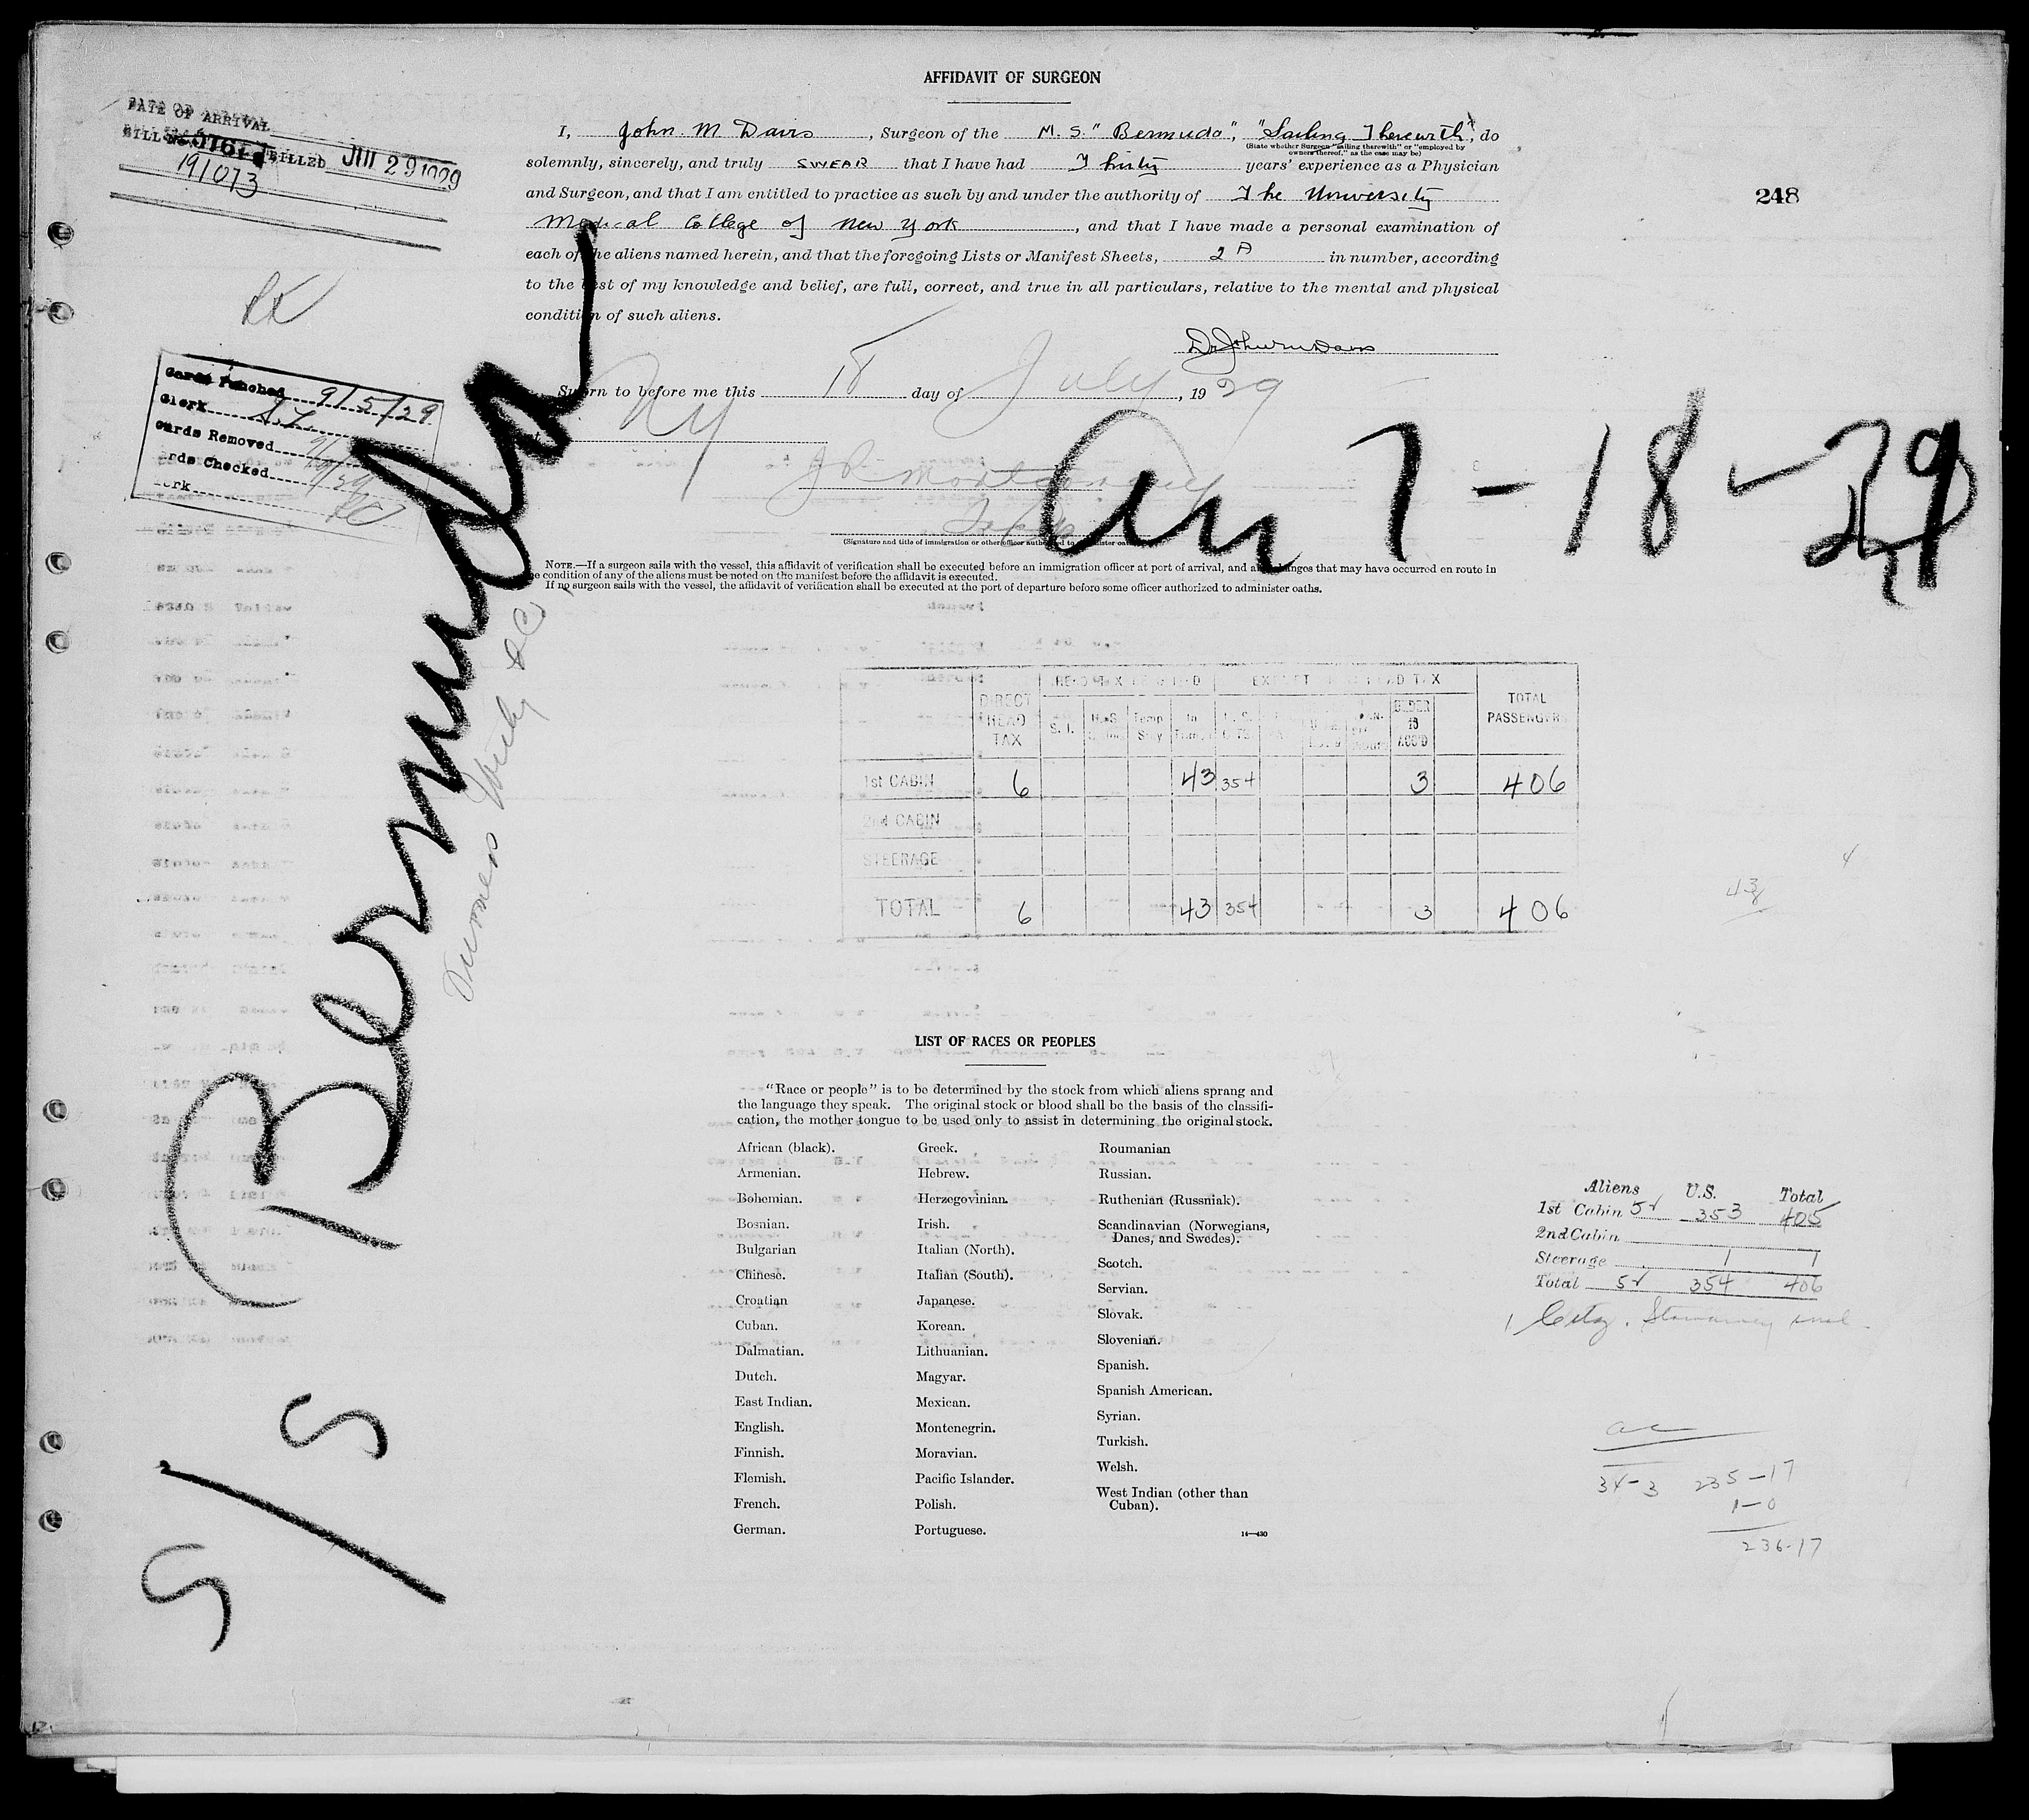 AFFIDAVIT OF SURGEON
DATE OF ARRIVAL
BILL BILLED JUL 29 1929
191073
248
I, John. M Davis, Surgeon of the M. S. "Bermuda", "Sailing Therewith", do
(State whether Surgeon "sailing therewith" or "employed by
owners thereof," as the case may be)
solemnly, sincerely, and truly SWEAR that I have had Thirty years' experience as a Physician
and Surgeon, and that I am entitled to practice as such by and under the authority of The University
Medical College of New York, and that I have made a personal examination of
each of the aliens named herein, and that the foregoing Lists or Manifest Sheets, 2 A in number, according
to the best of my knowledge and belief, are full, correct, and true in all particulars, relative to the mental and physical
condition of such aliens.
Sworn to before me this 18 day of July, 1929
NY
Cards Punched 9/5/29
Clerk
Cards Removed
Cards Checked
Clerk
S/S Bermuda
Arr 7-18-29
(Signature and title of immigration or other officer authorized to administer oaths)
NOTE.—If a surgeon sails with the vessel, this affidavit of verification shall be executed before an immigration officer at port of arrival, and any changes that may have occurred en route in
the condition of any of the aliens must be noted on the manifest before the affidavit is executed.
If no surgeon sails with the vessel, the affidavit of verification shall be executed at the port of departure before some officer authorized to administer oaths.
Furness Withy & Co
DIRECT HEAD TAX S.I. Temp Stay In Transit UNDER 16 ACC'D TOTAL PASSENGERS
EXEMPT HEAD TAX
1st CABIN 6 43 354 3 406
2nd CABIN
STEERAGE
TOTAL 6 43 354 3 406
43
LIST OF RACES OR PEOPLES
"Race or people" is to be determined by the stock from which aliens sprang and
the language they speak. The original stock or blood shall be the basis of the classifi-
cation, the mother tongue to be used only to assist in determining the original stock.
African (black).
Armenian.
Bohemian.
Bosnian.
Bulgarian
Chinese.
Croatian
Cuban.
Dalmatian.
Dutch.
East Indian.
English.
Finnish.
Flemish.
French.
German.
Greek.
Hebrew.
Herzegovinian.
Irish.
Italian (North).
Italian (South).
Japanese.
Korean.
Lithuanian.
Magyar.
Mexican.
Montenegrin.
Moravian.
Pacific Islander.
Polish.
Portuguese.
Roumanian
Russian.
Ruthenian (Russniak).
Scandinavian (Norwegians,
Danes, and Swedes).
Scotch.
Servian.
Slovak.
Slovenian.
Spanish.
Spanish American.
Syrian.
Turkish.
Welsh.
West Indian (other than
Cuban).
14—430
Aliens U.S. Total
1st Cabin 52 353 405
2nd Cabin
Steerage 1 1
Total 52 354 406
34-3 235-17
1-0
236-17